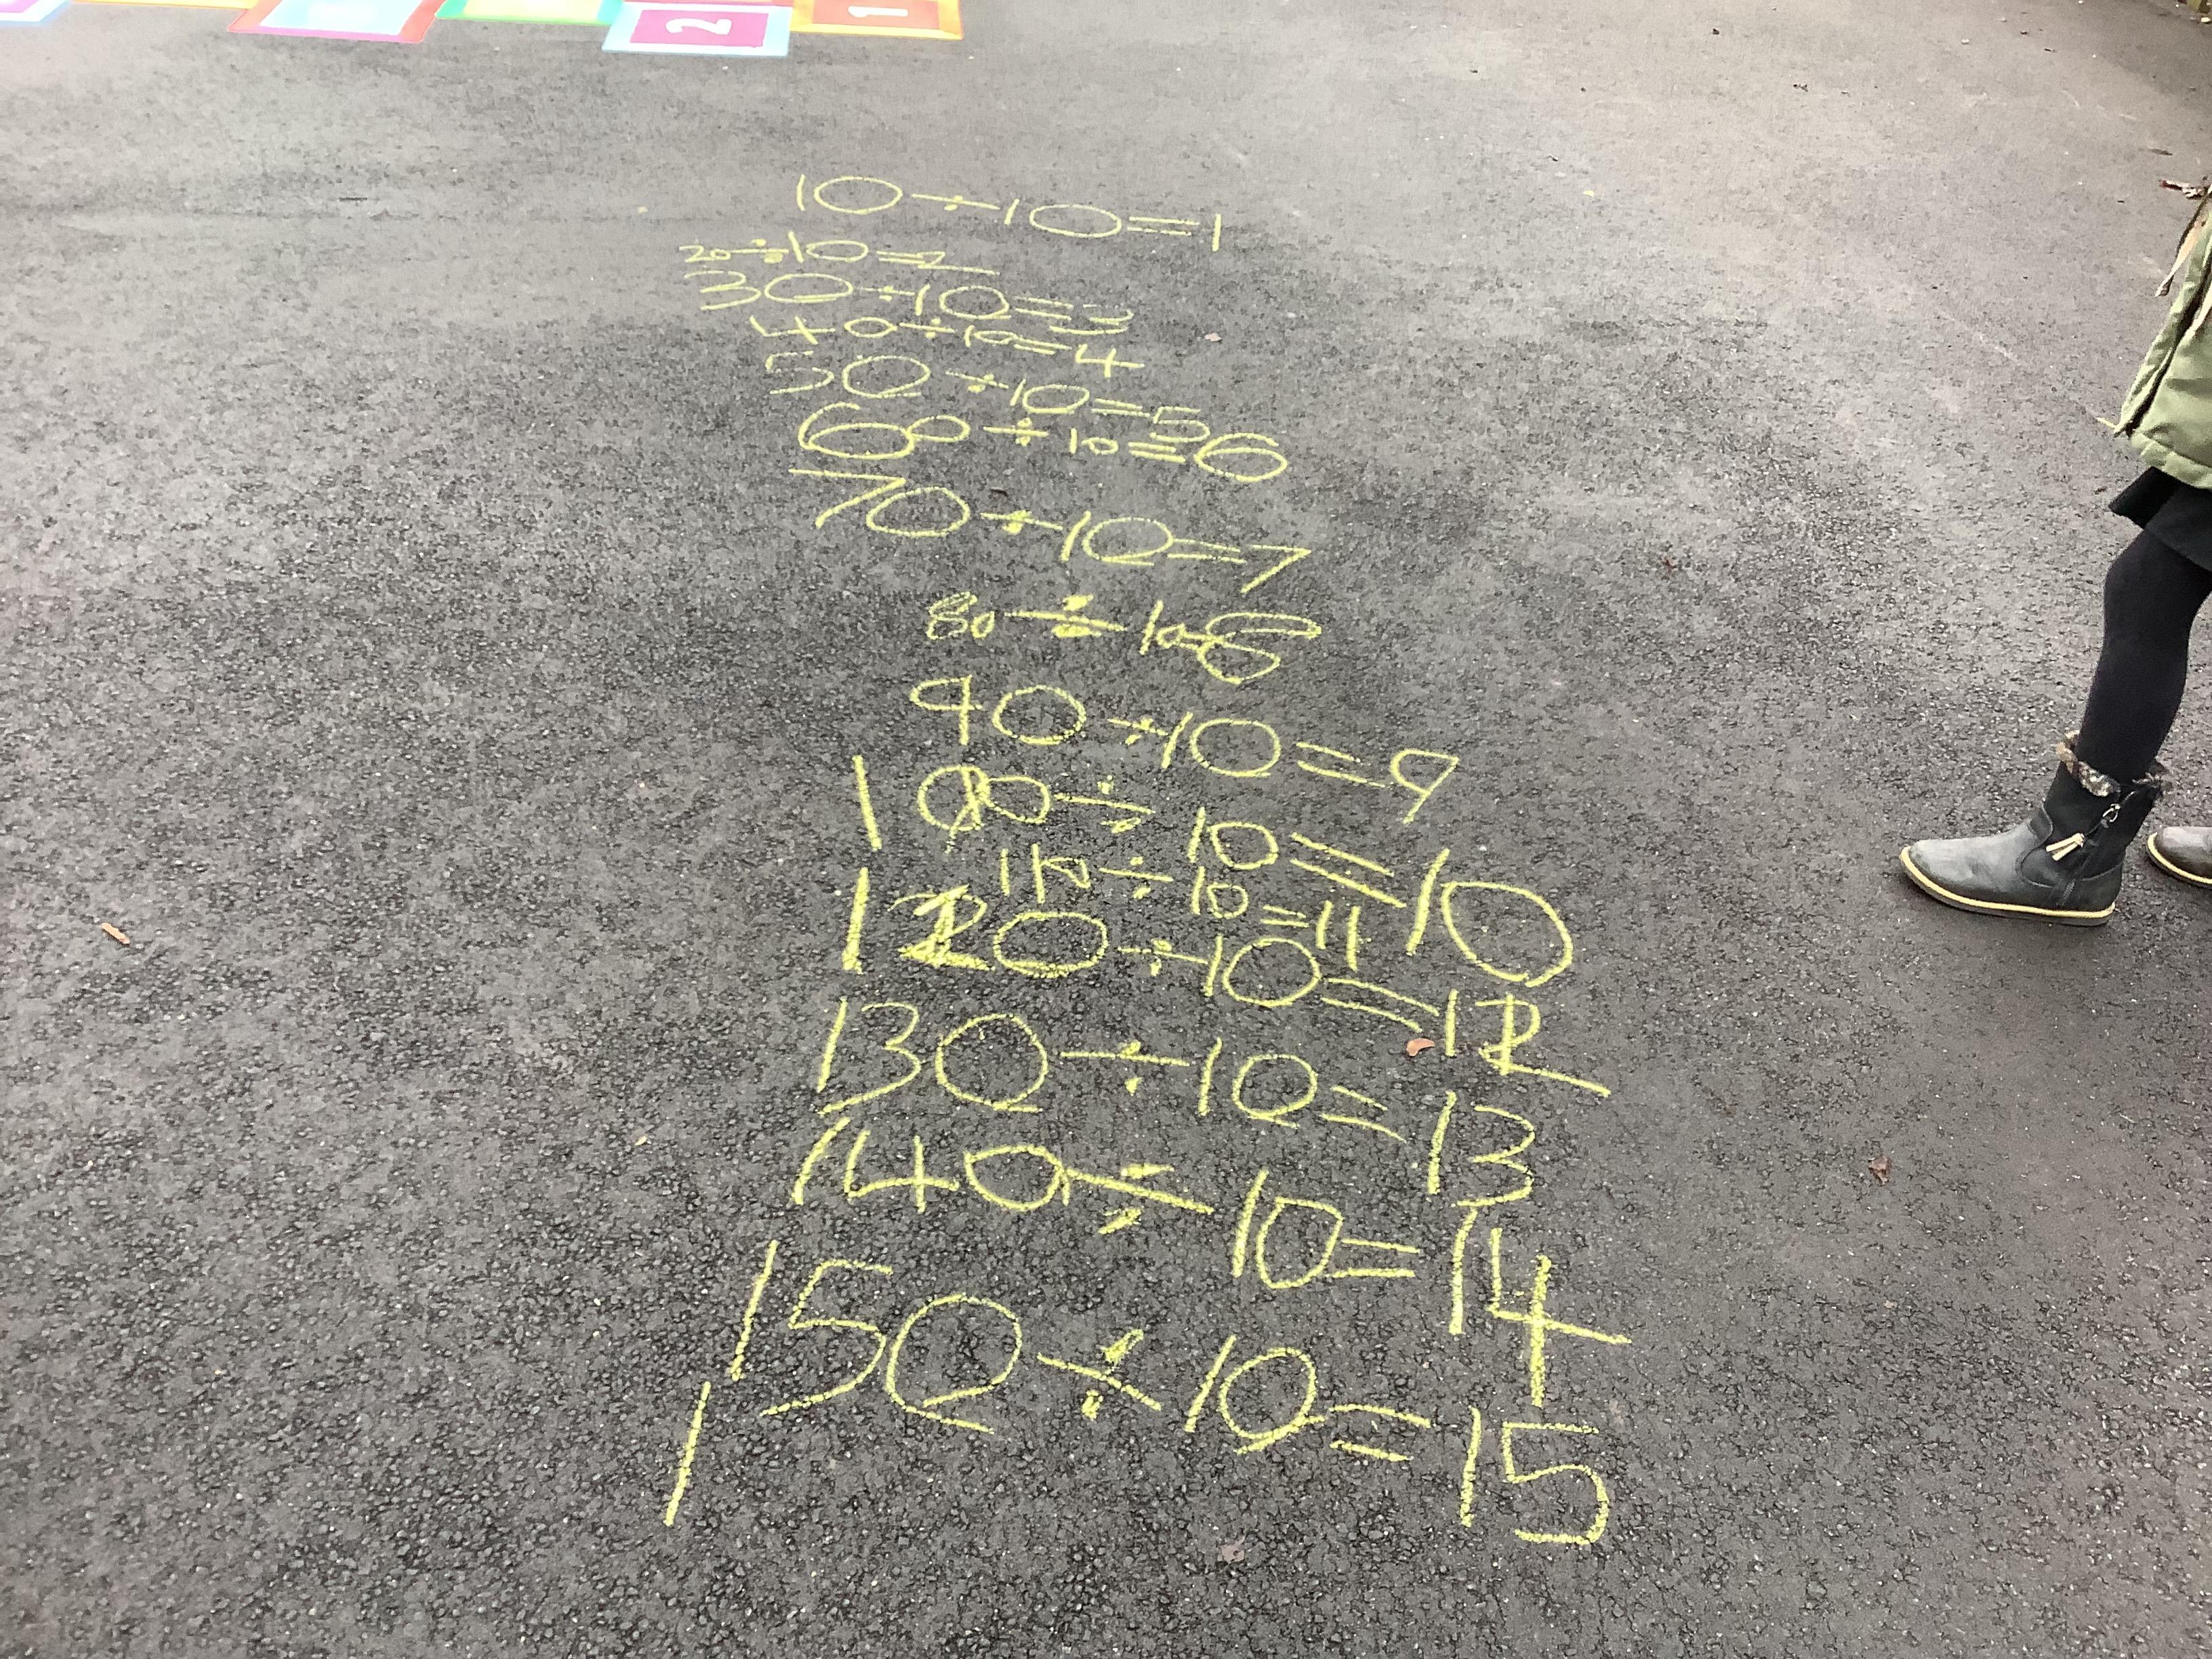 2 1
10÷10=1
20÷10=2
30÷10=3
40÷10=4
50÷10=5
60÷10=6
70÷10=7
80÷10=8
90÷10=9
100÷10=10
110÷10=11
120÷10=12
130÷10=13
140÷10=14
150÷10=15
1